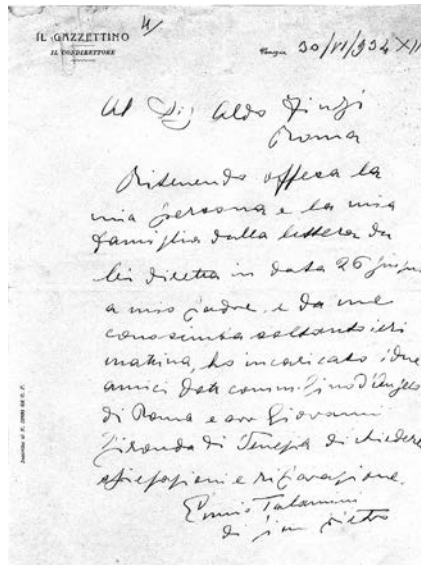 IL GAZZETTINO
IL CONDIRETTORE
4/
Venezia 30/VI/934 XII
Al Sig Aldo Finzi
Roma
Ritenendo offesa la
mia persona e la mia
famiglia dalla lettera da
lei diretta in data 26 giugno
a mio padre e da me
conosciuta soltanto ieri
mattina, ho incaricato i due
amici dott comm. Gino d'Angelo
di Roma e avv Giovanni
Gironda di Venezia di chiedere
spiegazioni e riparazione.
Ennio Talamini
di Pietro